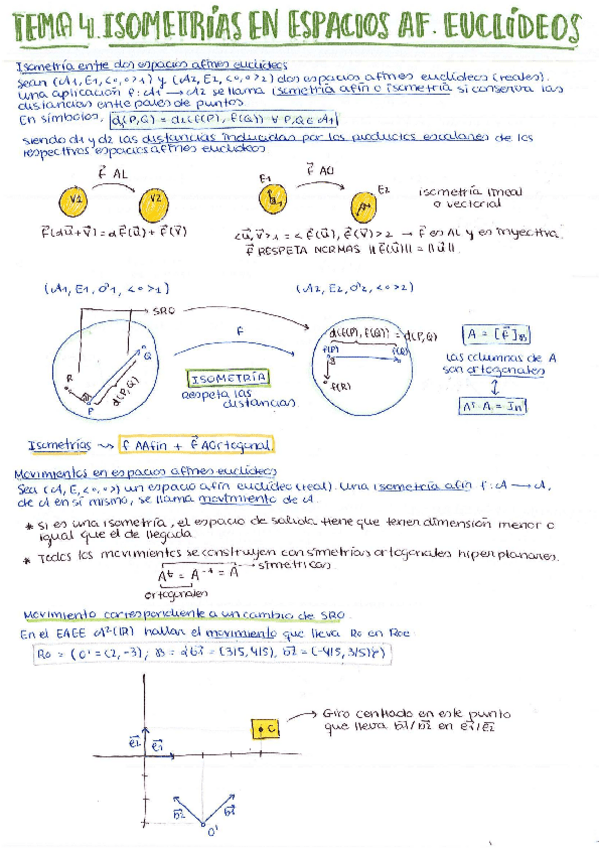 TEMA 4. ISOMETRÍAS EN ESPACIOS AF. EUCLÍDEOS
Isometría entre dos espacios afines euclídeos
Sean (A1, E1, <,∘>1) y (A2, E2, <∘,∘>2) dos espacios afines euclídeos (reales).
una aplicación f: A1 → A2 se llama isometría afín o isometría si conserva las
distancias entre pares de puntos.
En símbolos, d1(P,Q) = d2(f(P), f(Q)) ∀ P,Q ∈ A1
siendo d1 y d2 las distancias inducidas por los productos escalares de los
respectivos espacios afines euclídeos
f⃗ AL
V1
V2
f⃗(αu⃗+v⃗) = αf⃗(u⃗) + f⃗(v⃗)
E1
f⃗ AO
E2
isometría lineal
o vectorial
<u⃗,v⃗>1 = <f⃗(u⃗), f⃗(v⃗)>2 → f⃗ es AL y es inyectiva.
f⃗ RESPETA NORMAS ||f⃗(u⃗)|| = ||u⃗||.
(A1, E1, O1, <∘>1)
(A2, E2, O2, <∘>2)
SRO
f
R
Q
P
d(P,Q)
ISOMETRÍA
Respeta las
distancias
d(f(P), f(Q)) = d(P,Q)
f(P)
f(Q)
f(R)
A = [f⃗]B
Las columnas de A
son ortogonales
↕
Aᵗ·A = In
Isometrías ⇝ f AAfin + f⃗ AOrtogonal
Movimientos en espacios afines euclídeos
Sea (A, E, <∘,∘>) un espacio afín euclídeo (real). Una isometría afín f: A → A,
de A en sí mismo, se llama movimiento de A.
* Si es una isometría, el espacio de salida tiene que tener dimensión menor o
igual que el de llegada.
* Todos los movimientos se construyen con simetrías ortogonales hiperplanares.
Aᵗ = A⁻¹ = A → simétricas
ortogonales
Movimiento correspondiente a un cambio de SRO.
En el EAEE A²(ℝ) hallar el movimiento que lleva Ro en Roe
Ro = {O' = (2, -3); B = {b⃗1 = (3/5, 4/5), b⃗2 = (-4/5, 3/5)}}
e⃗2
e⃗1
C
→ Giro centrado en este punto
que lleva b⃗1/b⃗2 en e⃗1/e⃗2
b⃗2
b⃗1
O'